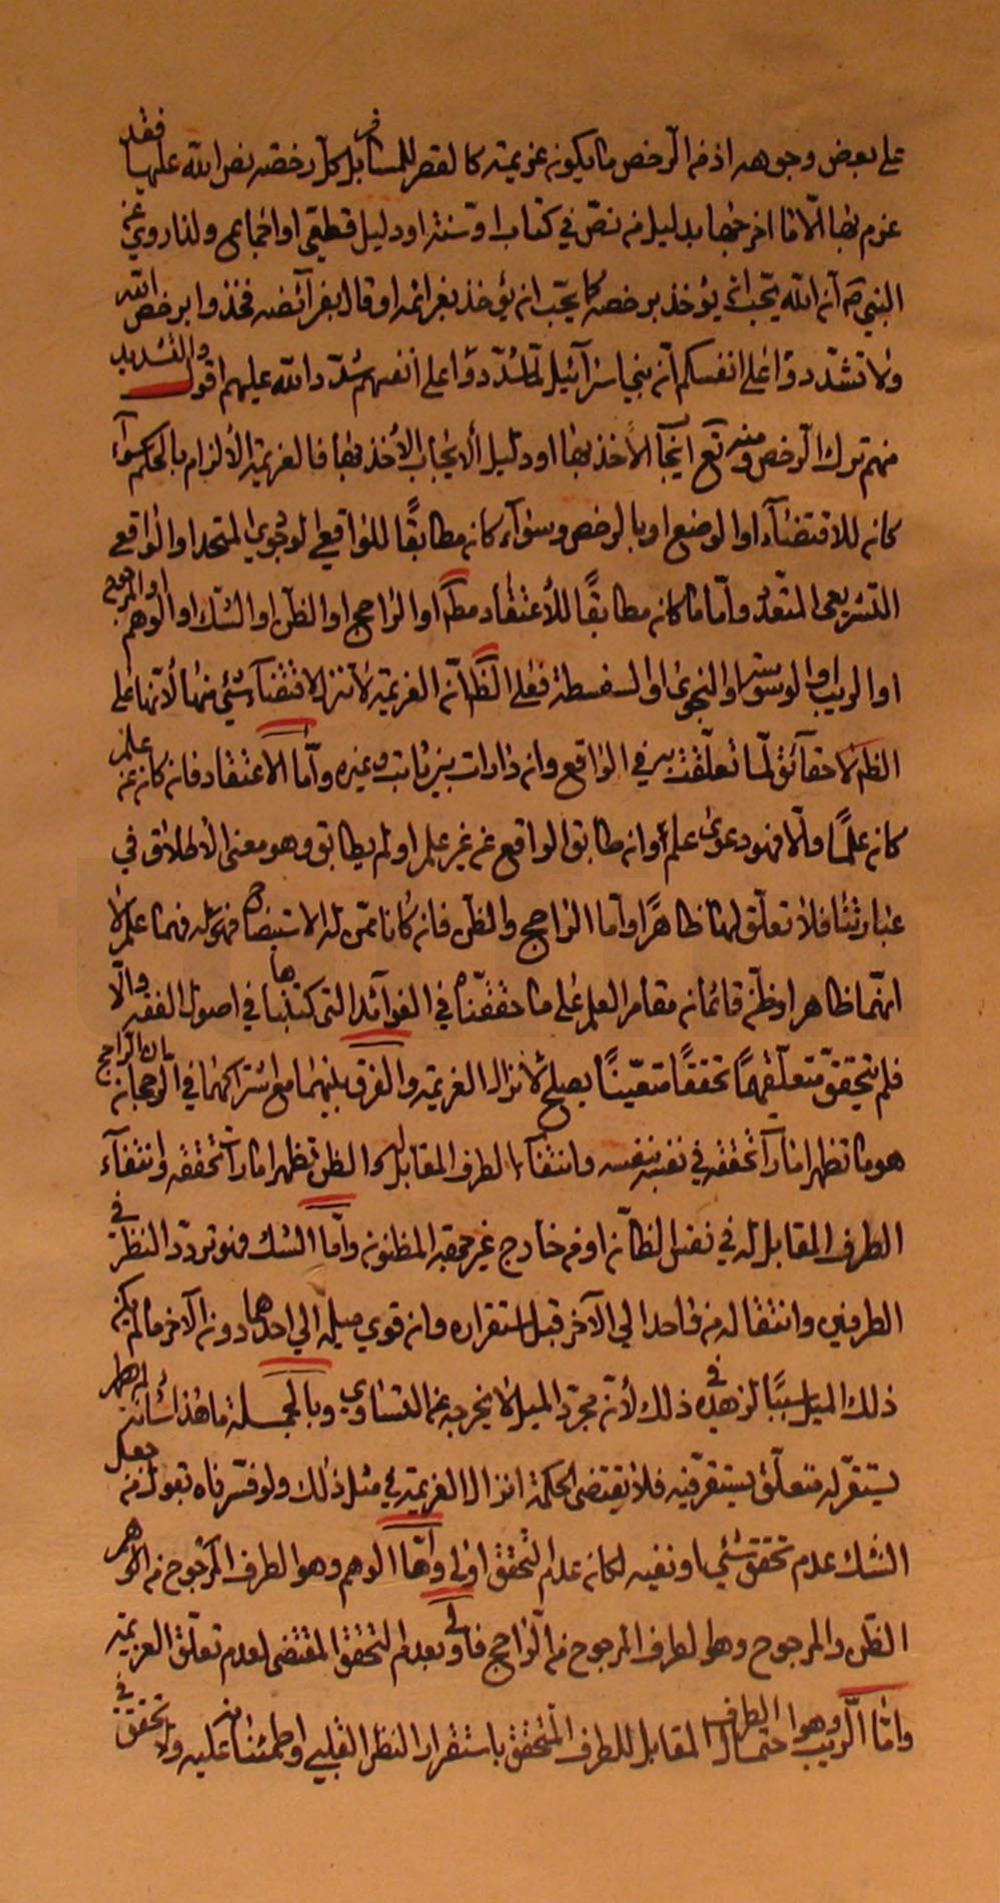 على بعض وجوهه اذ من الرخص ما يكون عزيمة كالقصر للمسافر بل كل رخصة نص الله عليها فقد
عزم بها الّا ما اخرجها بدليل من نصّ في كتاب او سنة او دليل قطعي او اجماع ولذا روي عن
النبي ص انّ الله يحبّ ان يؤخذ برخصه كما يحبّ ان يؤخذ بعزائمه او قال بفرآئضه فخذوا برخص الله
ولا تشدّدوا على انفسكم انّ بني اسرآئيل لمّا شدّدوا على انفسهم شدّد الله عليهم اقول والتشديد
منهم ترك الرخص ومنه تع ايجاب الأخذ بها او دليل ألايجاب الأخذ بها فالعزيمة الالزام بالحكم سوآء
كان للاقتضآء او الوضع او بالرخص وسوآء كان مطابقًا للواقعي الوجودي المتحد او الواقعي
التشريعي المتعدّد وأمّا ما كان مطابقًا للأعتقاد مطلقا او الراجح او الظن او الشك او الوهم او المرجوح
او الريب او الوسوسة او النجوى او السفسطة فعلى الظّ انّ العزيمة لا تنزل لاقتضآء شيئ منها لأنها على
الظّ لا حقآئق لما تعلّقت به في الواقع وان دارات بين ثابت وغيره وامّا الاعتقاد فان كان عن علم
كان علمًا والّا فهو دعوى علم وان طابق الواقع عن غير علم او لم يطابق وهو معنى الأطلاق في
عبارتنا فلا تعلّق لها ظاهرًا وأما الراجح والظن فان كانا ممّن له الاستيضاح فهو له فهما علم لا
انّهما ظاهر او ظنّ قائمان مقام العلم على ما حققناه في الفوآئد التي كتبناها في اصول الفقه والّا
فلم يتحقق متعلّقهما تحققًا متعيّنًا يصلح لأنزال العزيمة والفرق بينهما مع اشتراكهما في الرجحان بان الراجح
هو ما تظهر امارآت تحققه في نفسه بنفسه وانتفآء الطرف المقابل له والظن تظهر امارات تحققه وانتفآء
الطرف المقابل له في نفس الظآن او من خارج غير حقيقة المظنون وامّا الشك فهو تردّد النظر في
الطرفين وانتقاله من واحد الى الآخر قبل استقراره وان قوي ميله الى احدهما دون الآخر ما لم يكن
ذلك الميل سببًا لزهده في ذلك لأنّ مجرّد الميل لا يخرجه عن التساوي وبالجملة ما هذا شأنه لم يظهر
يستقرّ له متعلّق يستقر فيه فلا يقتضي الحكمة انزال العزيمة في مثل ذلك ولو فسّرناه بقول من جعل
الشك عدم تحقق شيئ او نفيه لكان عدم التحقق اولى وامّا الوهم وهو الطرف المرجوح من الاوهم
الظّن والمرجوح وهو الطرف المرجوح من الراجح فاولى بعدم التحقق المقتضي لعدم تعلّق العزيمة
وامّا الريب وهو احتمال الطرف المقابل للطرف المتحقق باستقرار النظر القلبي واطمئنانه عليه ولا تحقق في